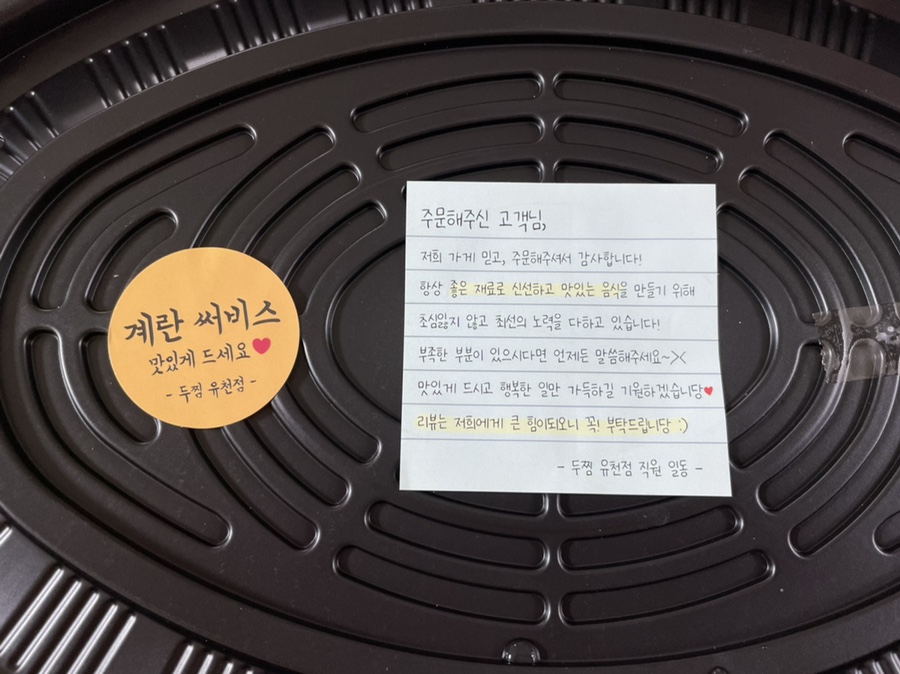 계란 써비스
맛있게 드세요♥
- 두찜 유천점 -
주문해주신 고객님,
저희 가게 믿고, 주문해주셔서 감사합니다!
항상 좋은 재료로 신선하고 맛있는 음식을 만들기 위해
초심잃지 않고 최선의 노력을 다하고 있습니다!
부족한 부분이 있으시다면 언제든 말씀해주세요~><
맛있게 드시고 행복한 일만 가득하길 기원하겠습니당♥
리뷰는 저희에게 큰 힘이되오니 꼭! 부탁드립니당 :)
- 두찜 유천점 직원 일동 -